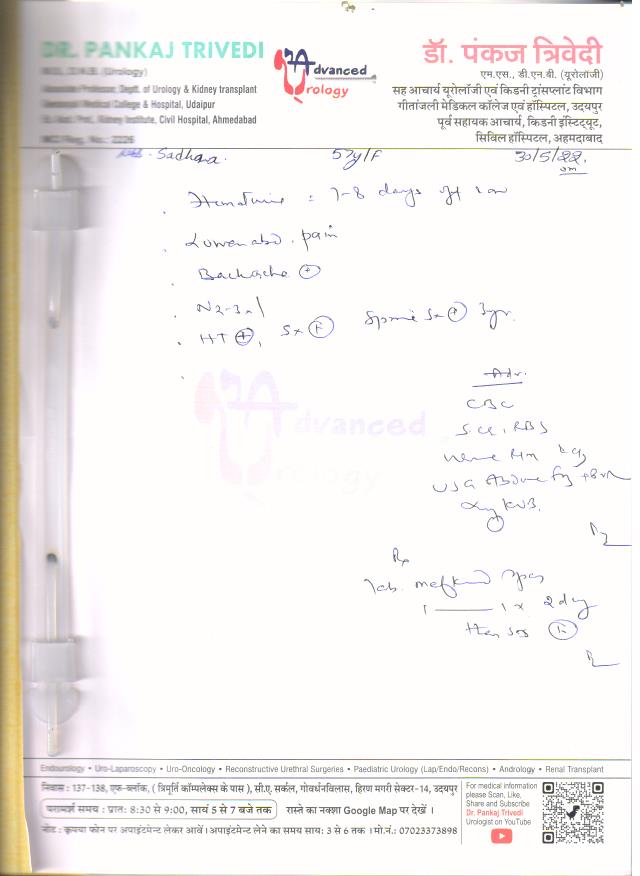 DR. PANKAJ TRIVEDI
M.S., D.N.B. (Urology)
Associate Professor, Deptt. of Urology & Kidney transplant
Geetanjali Medical College & Hospital, Udaipur
Ex. Asst. Prof., Kidney Institute, Civil Hospital, Ahmedabad
MCI Reg. No.: 2226
Advanced
Urology
डॉ. पंकज त्रिवेदी
एम.एस., डी.एन.बी. (यूरोलॉजी)
सह आचार्य यूरोलॉजी एवं किडनी ट्रांसप्लांट विभाग
गीतांजली मेडिकल कॉलेज एवं हॉस्पिटल, उदयपुर
पूर्व सहायक आचार्य, किडनी इंस्टिट्यूट,
सिविल हॉस्पिटल, अहमदाबाद
Sadhana. 57y/F 30/5/22.
Hematuria : 7-8 days
Lower abd. pain
Backache +
N2-3x/
HT +, Sx + Spine Sx + 3yr.
Adv.
CBC
S.Cr, RBS
Urine R/M
USG Abdomen
Xray KUB.
Advanced
Urology
Rx
Tab. mefkind spas
1 — 1 x 2 day
then sos
Endourology • Uro-Laparoscopy • Uro-Oncology • Reconstructive Urethral Surgeries • Paediatric Urology (Lap/Endo/Recons) • Andrology • Renal Transplant
निवास : 137-138, एफ-ब्लॉक, ( त्रिमूर्ति कॉम्पलेक्स के पास ), सी.ए. सर्कल, गोवर्धनविलास, हिरण मगरी सेक्टर-14, उदयपुर
परामर्श समय : प्रात: 8:30 से 9:00, सायं 5 से 7 बजे तक रास्ते का नक्शा Google Map पर देखें ।
नोट : कृपया फोन पर अपाइंटमेन्ट लेकर आवें। अपाइंटमेन्ट लेने का समय साय: 3 से 6 तक । मो.नं.: 07023373898
For medical information
please Scan, Like,
Share and Subscribe
Dr. Pankaj Trivedi
Urologist on YouTube